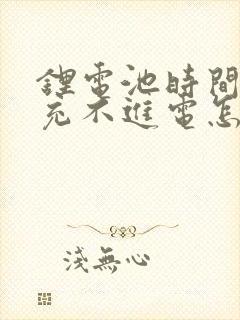 鋰電池時間
充不進電怎
淺無心